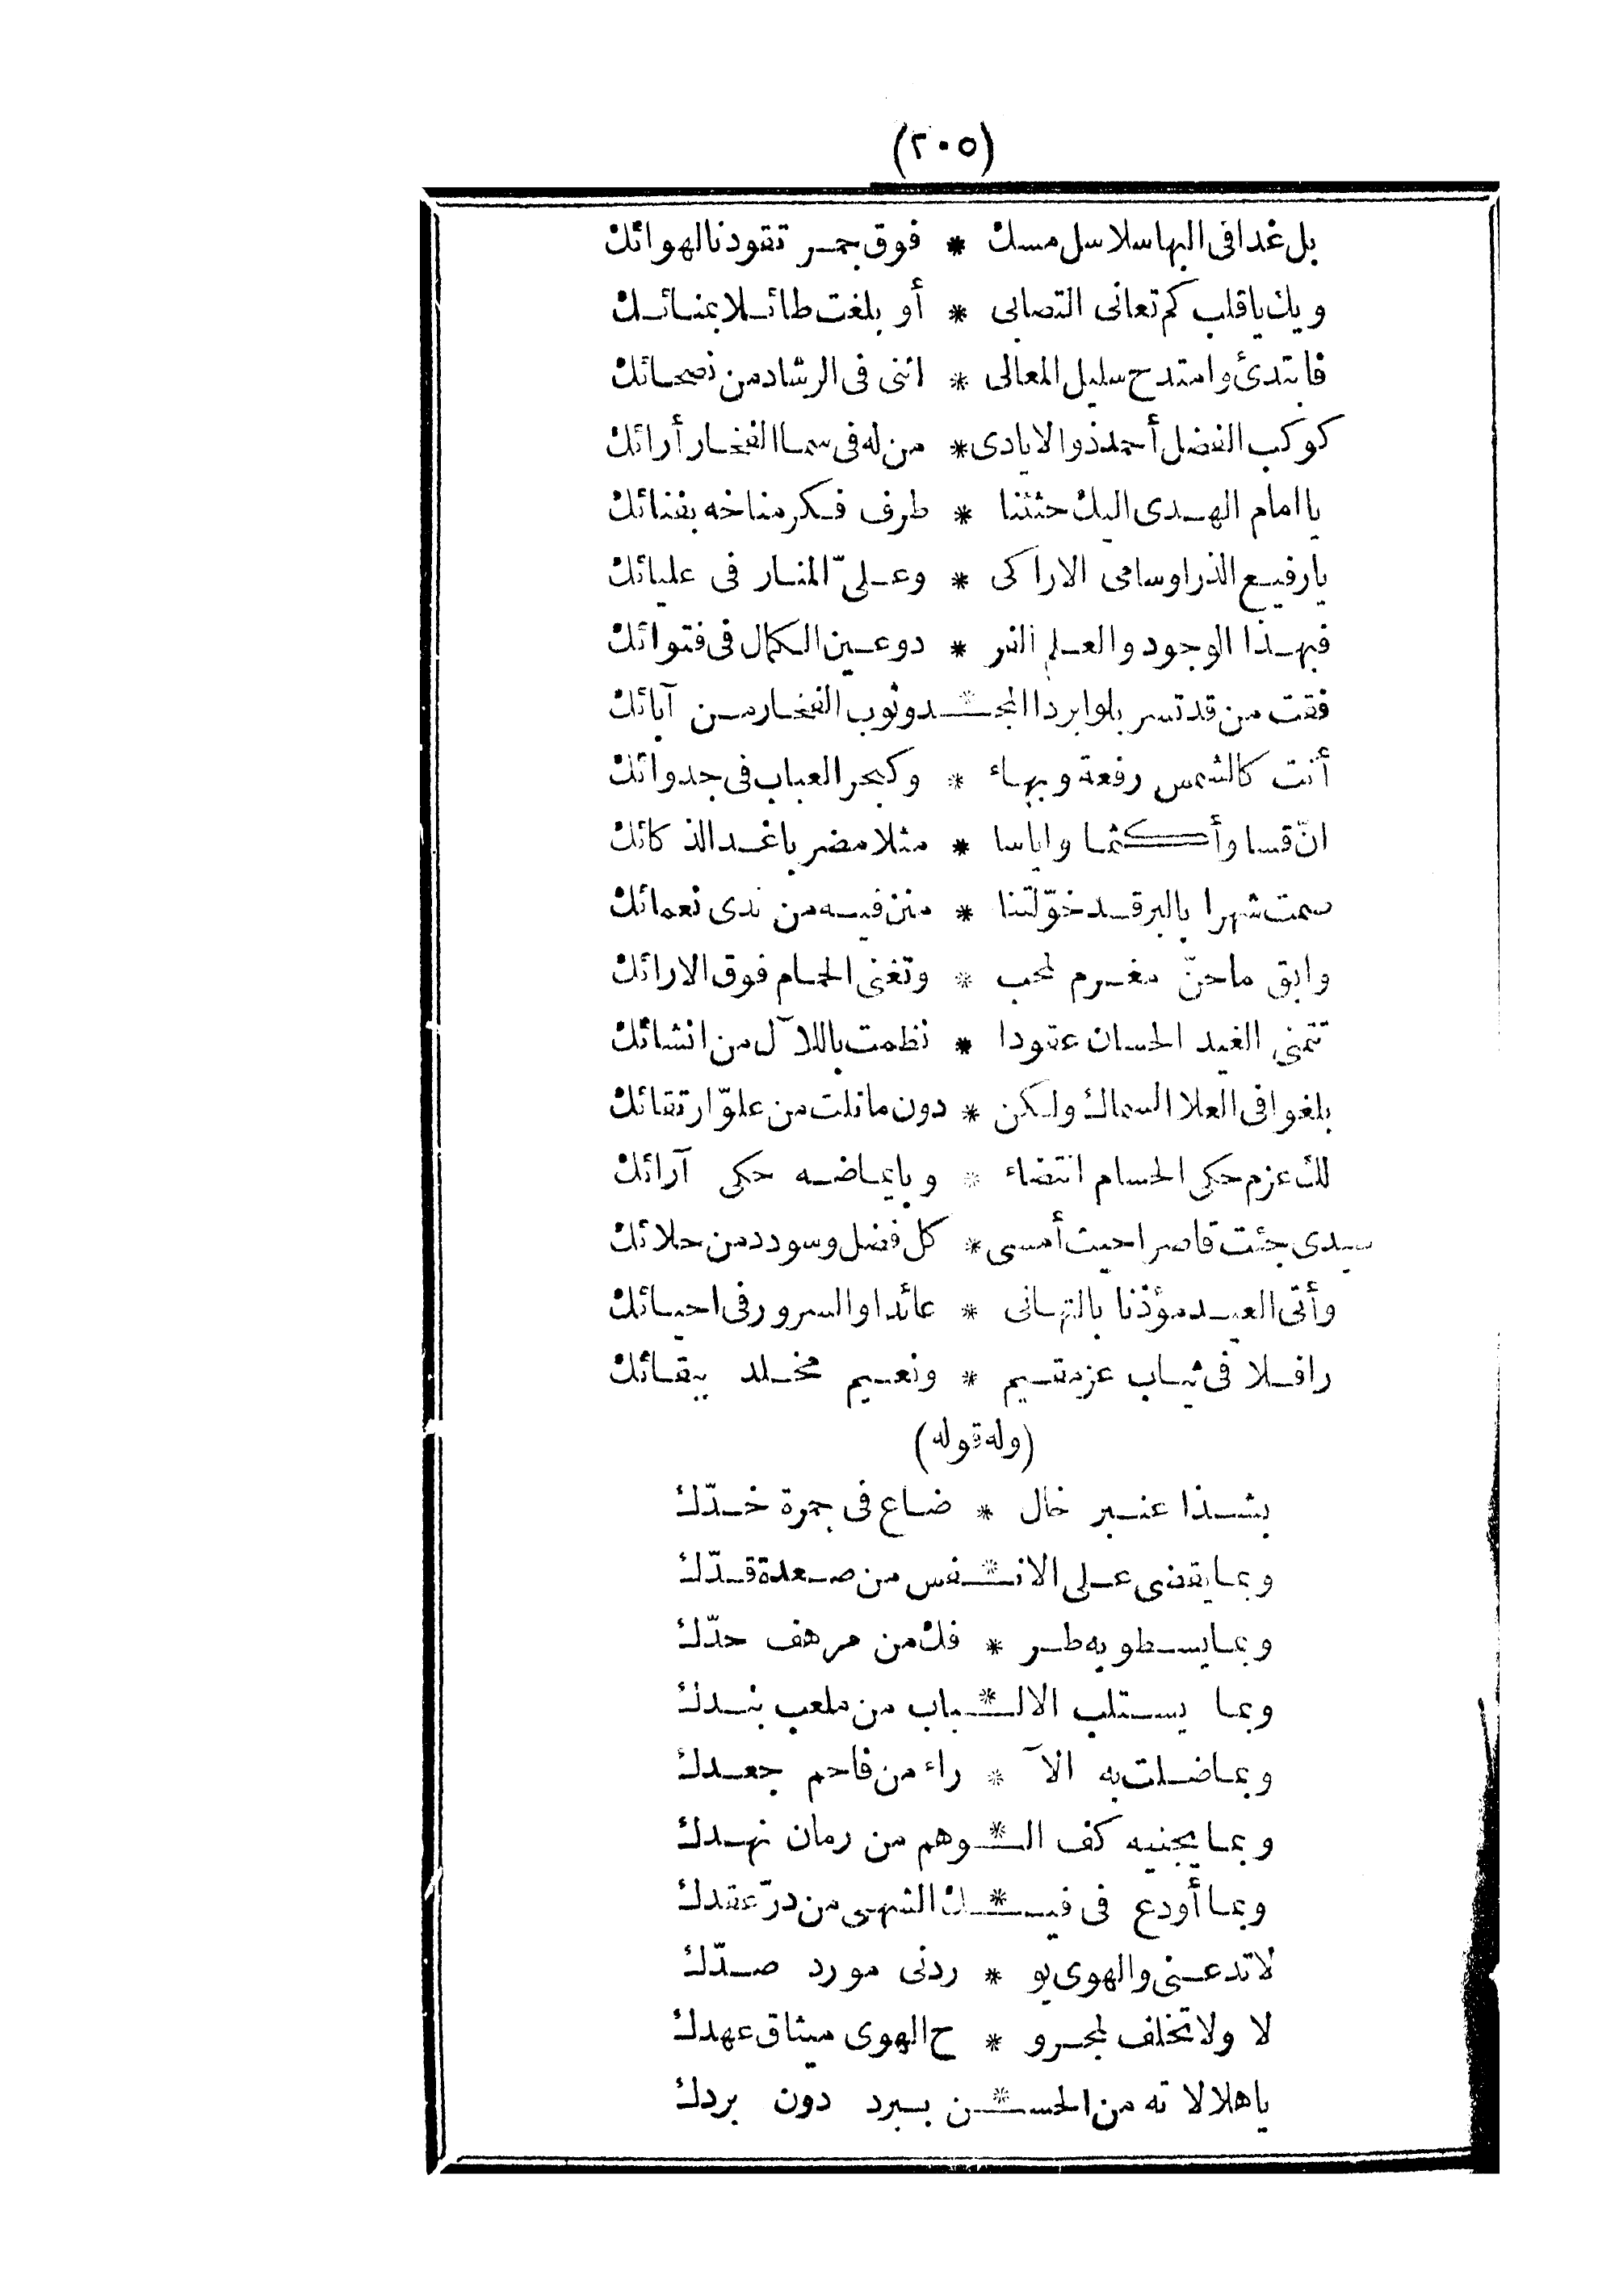 (٢٠٥)
بل غدا فى البها سلاسل مسك * فوق جمر تقودنا لهوائك
ويك ياقلب كم تعانى التصابى * أو بلغت طائلا بمنائك
فابتدئ وامتدح سليل المعالى * اننى فى الرشاد من نصحائك
كوكب الفضل أحمد ذو الايادى * من له فى سما الفخار أرائك
يا امام الهدى اليك حثثنا * طرف فكر مناخه بفنائك
يا رفيع الذرا وسامى الاراكى * وعلىّ المنار فى عليائك
فبهذا الوجود والعلم الفر * دو عين الكمال فى فتوائك
فقت من قد تسر بلوا بردا المجـ * ـد وثوب الفخار من آبائك
أنت كالشمس رفعة وبهاء * وكبحر العباب فى جدوائك
انّ قسا وأكثما واياسا * مثلا مضر باغدا لذكائك
سمت شهرا بالبر قد خوّلتنا * منن فيه من ندى نعمائك
وابق ماحنّ مغرم لمحب * وتغنى الحمام فوق الارائك
تتمنى الغيد الحسان عقودا * نظمت باللآل من انشائك
بلغوا فى العلا السماك ولكن * دون مانلت من علوّ ارتقائك
لك عزم حكى الحسام انتضاء * وبايماضه حكى آرائك
سيدى جئت قاصرا حيث أمسى * كل فضل وسودد من حلائك
وأتى العيد مؤذنا بالتهانى * عائدا والسرور فى احيائك
رافلا فى ثياب عز مقيم * ونعيم مخلد ببقائك
(وله قوله)
بشذا عنبر خال * ضاع فى جمرة خدّك
وبما يقضى على الانـ * ـفس من صعدة قدّك
وبما يسطو به طر * فك من مرهف حدّك
وبما يستلب الالـ * ـباب من ملعب بندك
وبما ضلت به الآ * راء من فاحم جعدك
وبما يجنيه كف الـ * ـوهم من رمان نهدك
وبما أودع فى فيـ * ـك الشهى من درّ عقدك
لا تدعنى والهوى يو * ردنى مورد صدّك
لا ولا تخلف لمجرو * ح الهوى ميثاق عهدك
يا هلالا ته من الحسـ * ـن ببرد دون بردك